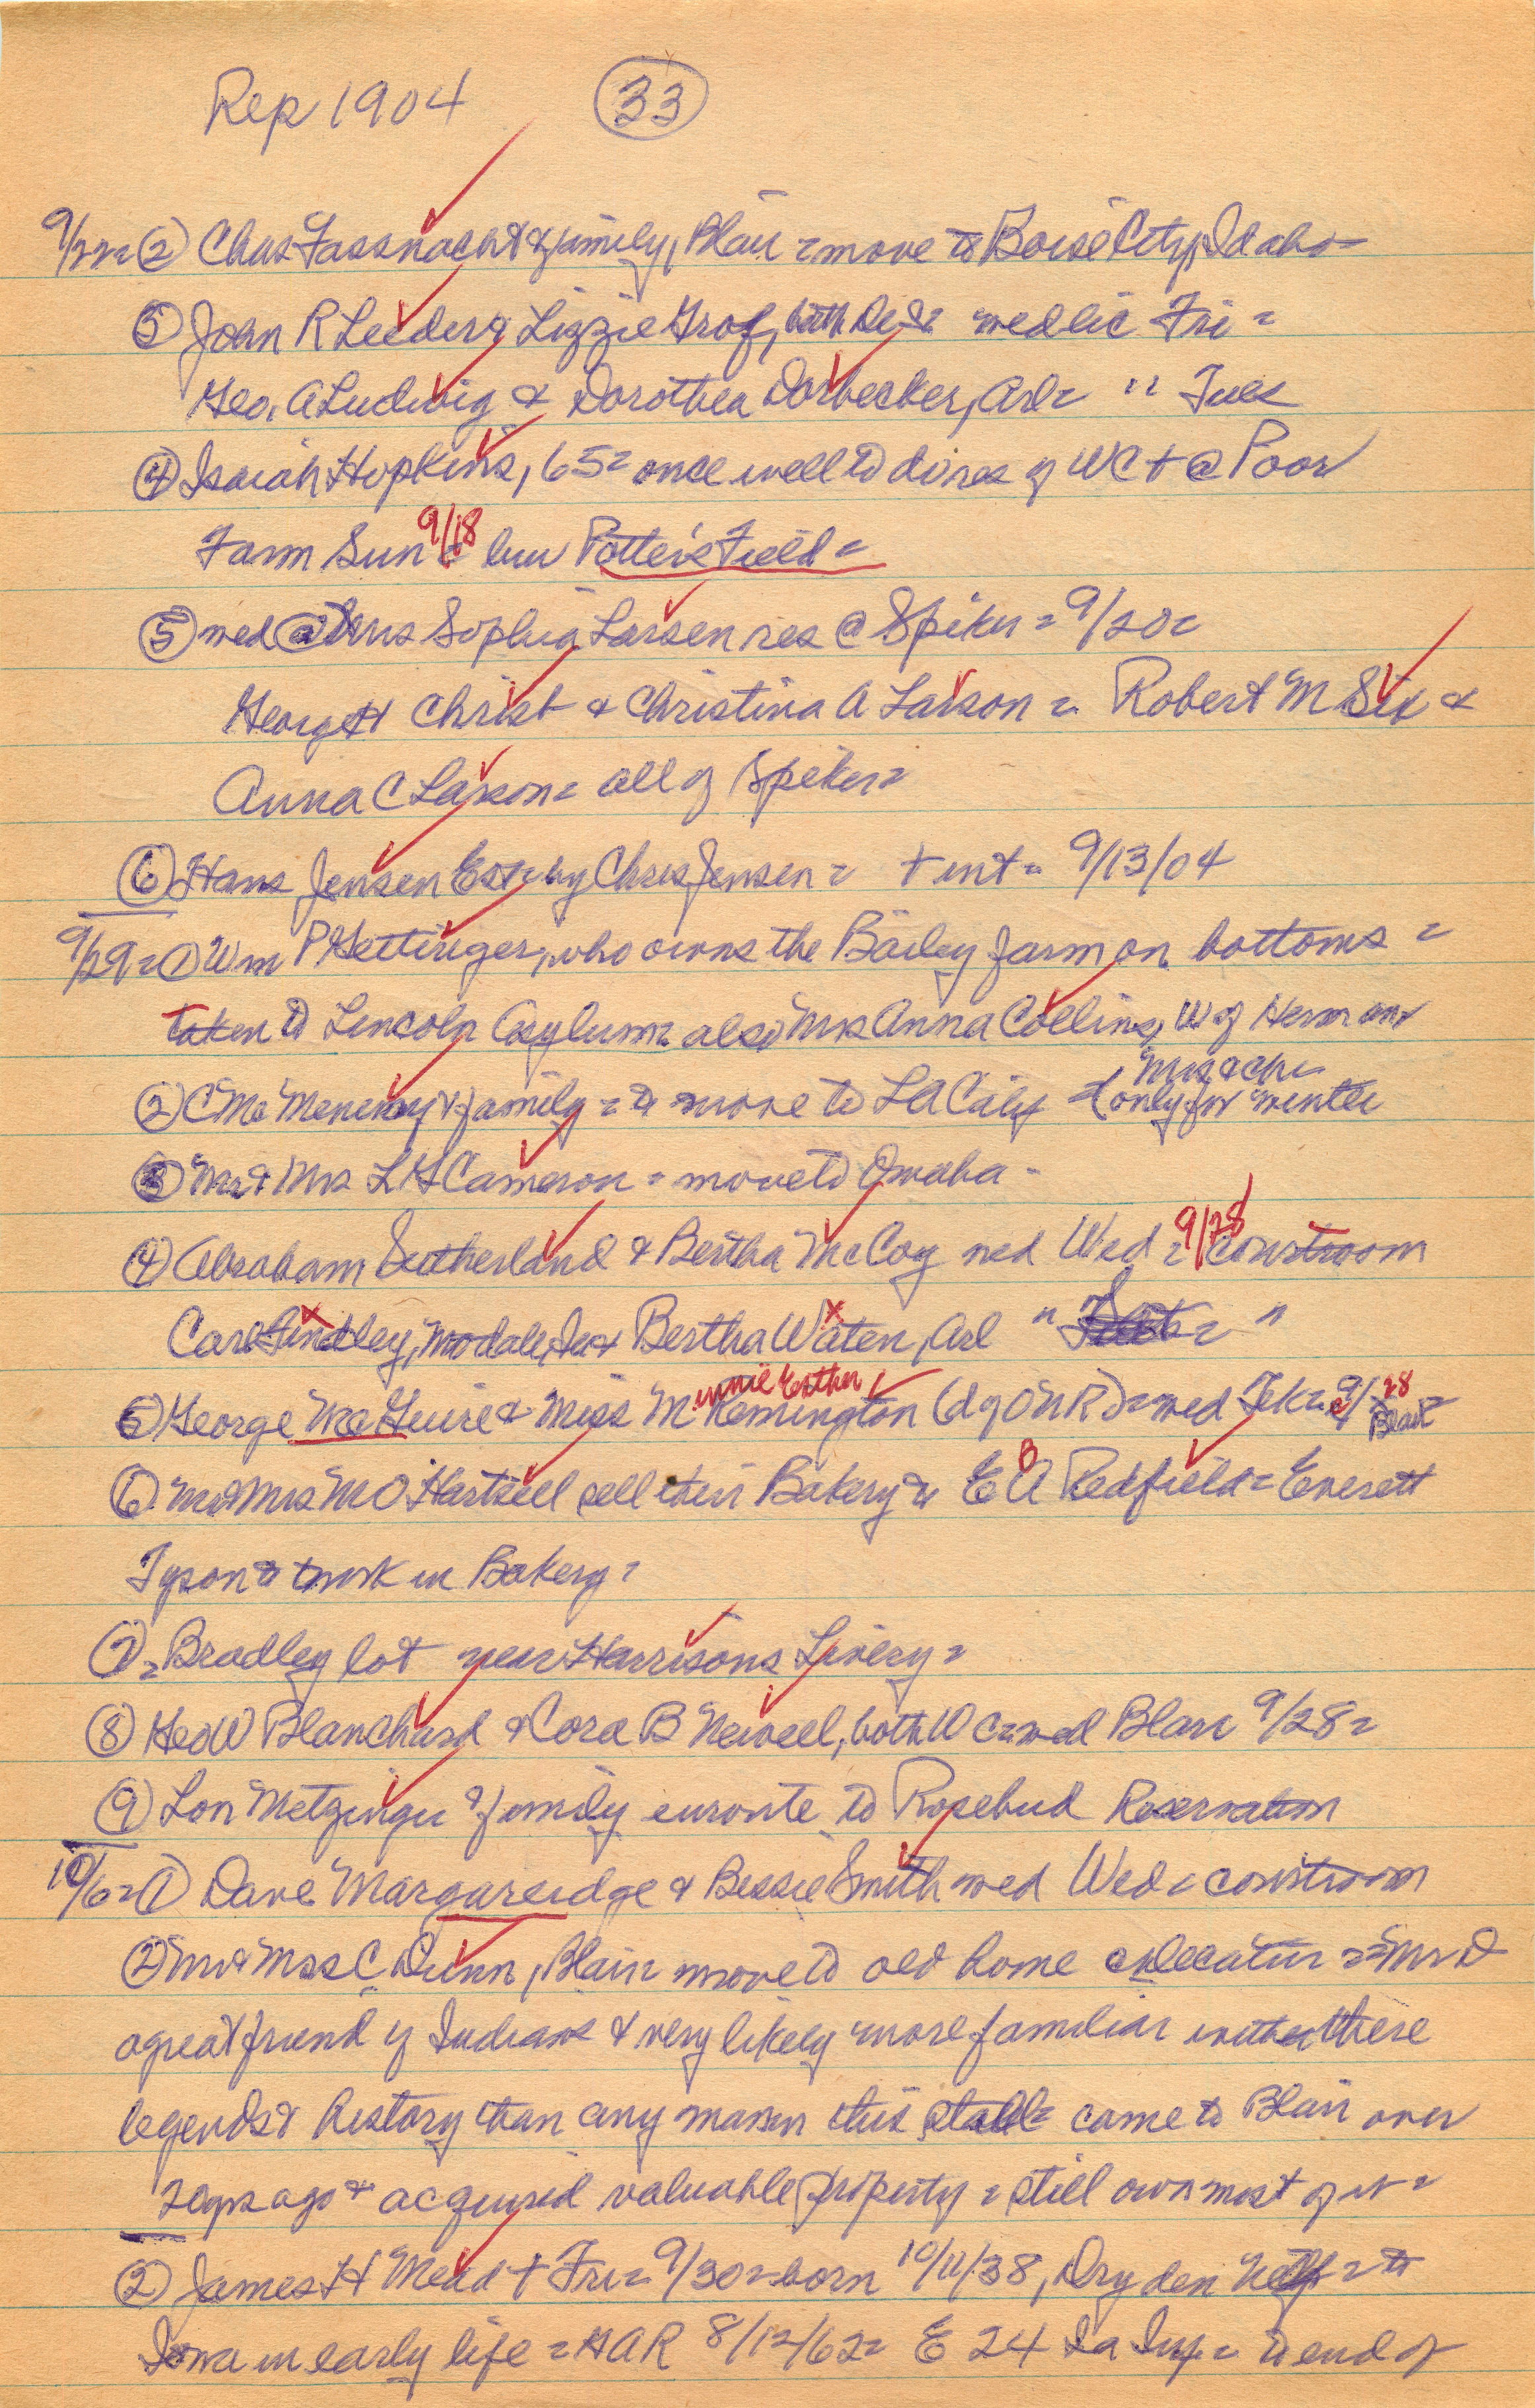 Rep 1904 33
9/22= 2 Chas Fassnacht & family, Blair = move to Boise City, Idaho =
3 John R Leeder & Lizzie Grof, both wed lic Fri =
Geo. A Ludwig & Dorothea Dorbecker, Arl = " Tues
4 Isaiah Hopkins, 65 = once well to do res of WC + @ Poor
Farm Sun 9/18 = bur Potter's Field =
5 wed @ Mrs Sophia Larsen res @ Spiker = 9/20 =
George H Christ & Christina A Larson = Robert M Six &
Anna C Larson = all of Spiker =
6 Hans Jensen Est = by Chris Jensen = + int = 9/13/04
9/29= 1 Wm P Gettinger, who owns the Bailey farm on bottoms =
taken to Lincoln Asylum = also Mrs Anna Collins, W of Herman
2 C McMenemy & family = to move to LA Calif = (Mrs & ch
only for winter
3 Mr & Mrs L H Cameron = move to Omaha =
4 Abraham Sutherland & Bertha McCoy wed Wed = 9/28 courtroom
Carl Findley, Modale, Ia & Bertha Waten, Arl " "
5 George McGuire & Miss Minnie Esther Remington (d of O N R) = wed Tek = 9/28 Blair =
6 Mr & Mrs M O Hartzell sell their Bakery to E B Redfield = Everett
Tyson to work in Bakery =
7 = Bradley lot near Harrisons Livery =
8 Geo W Blanchard & Cora B Newell, both W C = wed Blair 9/28 =
9 Lon Metzinger & family enroute to Rosebud Reservation
10/6= 1 Dave Margareidge & Bessie Smith wed Wed = courtroom
2 Mr & Mrs C Dunn, Blair move to old home Decatur = Mr D
a great friend of Indians & very likely more familiar with there
legends & history than any man in this state = came to Blair over
20 yrs ago & acquired valuable property = still own most of it =
2 James H Mead + Fri = 9/30 = born 10/11/38, Dryden = to
Iowa in early life = GAR 8/12/62 = E 24 Ia Inf = to end of